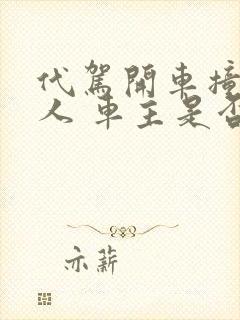 代駕開車撞
人 車主是否
亦薪